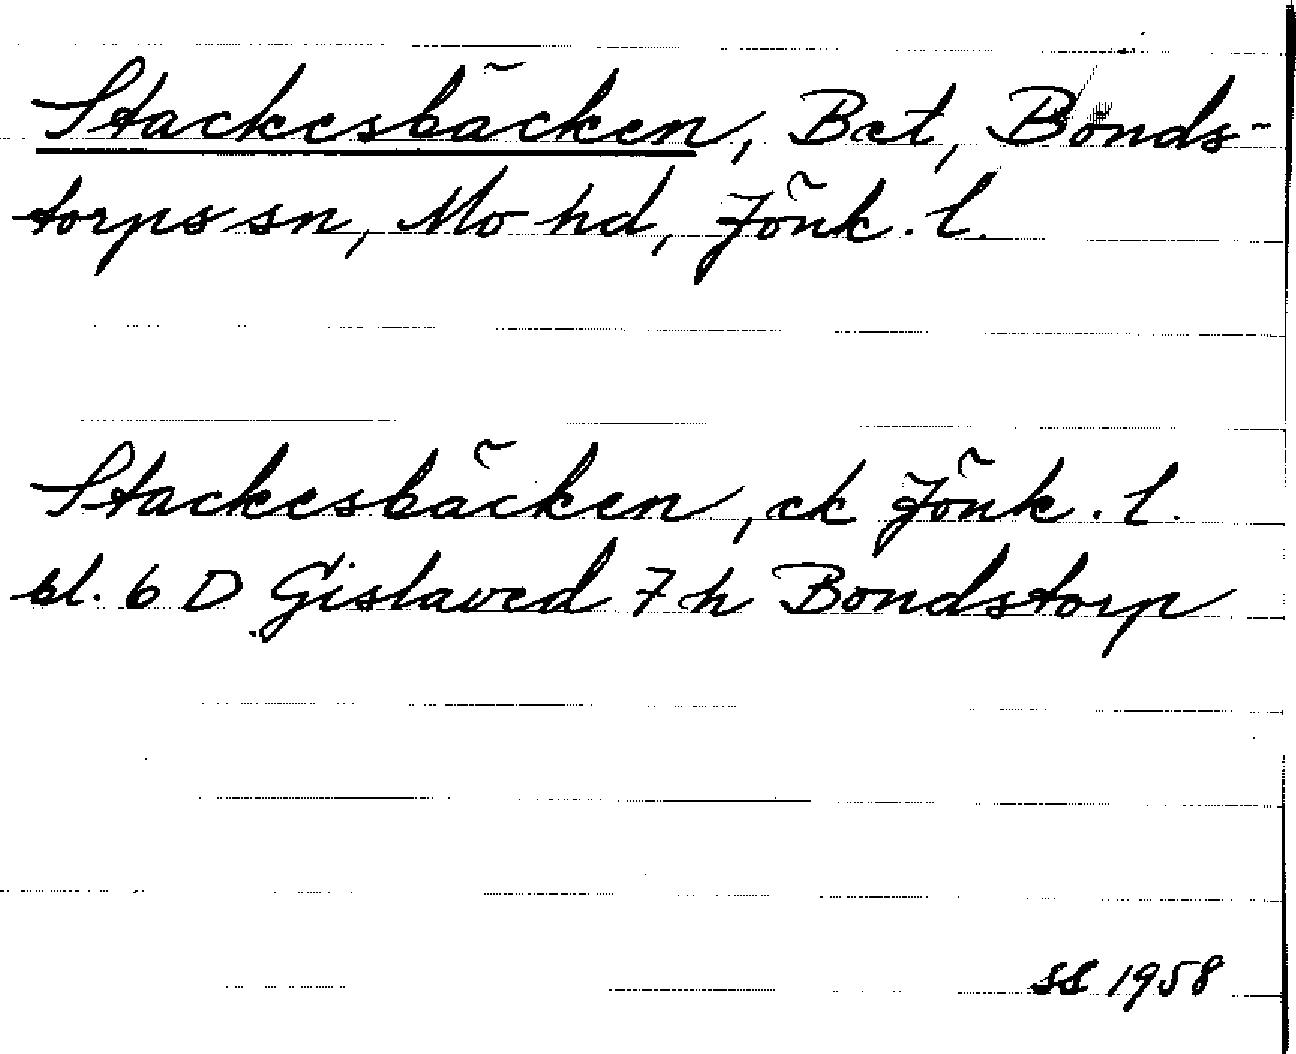 Stackesbäcken, Bct, Bonds-
torps sn, Mo hd, Jönk. l.
Stackesbäcken, ek Jönk. l.
bl. 6 D Gislaved 7 h Bondstorp
SS 1958